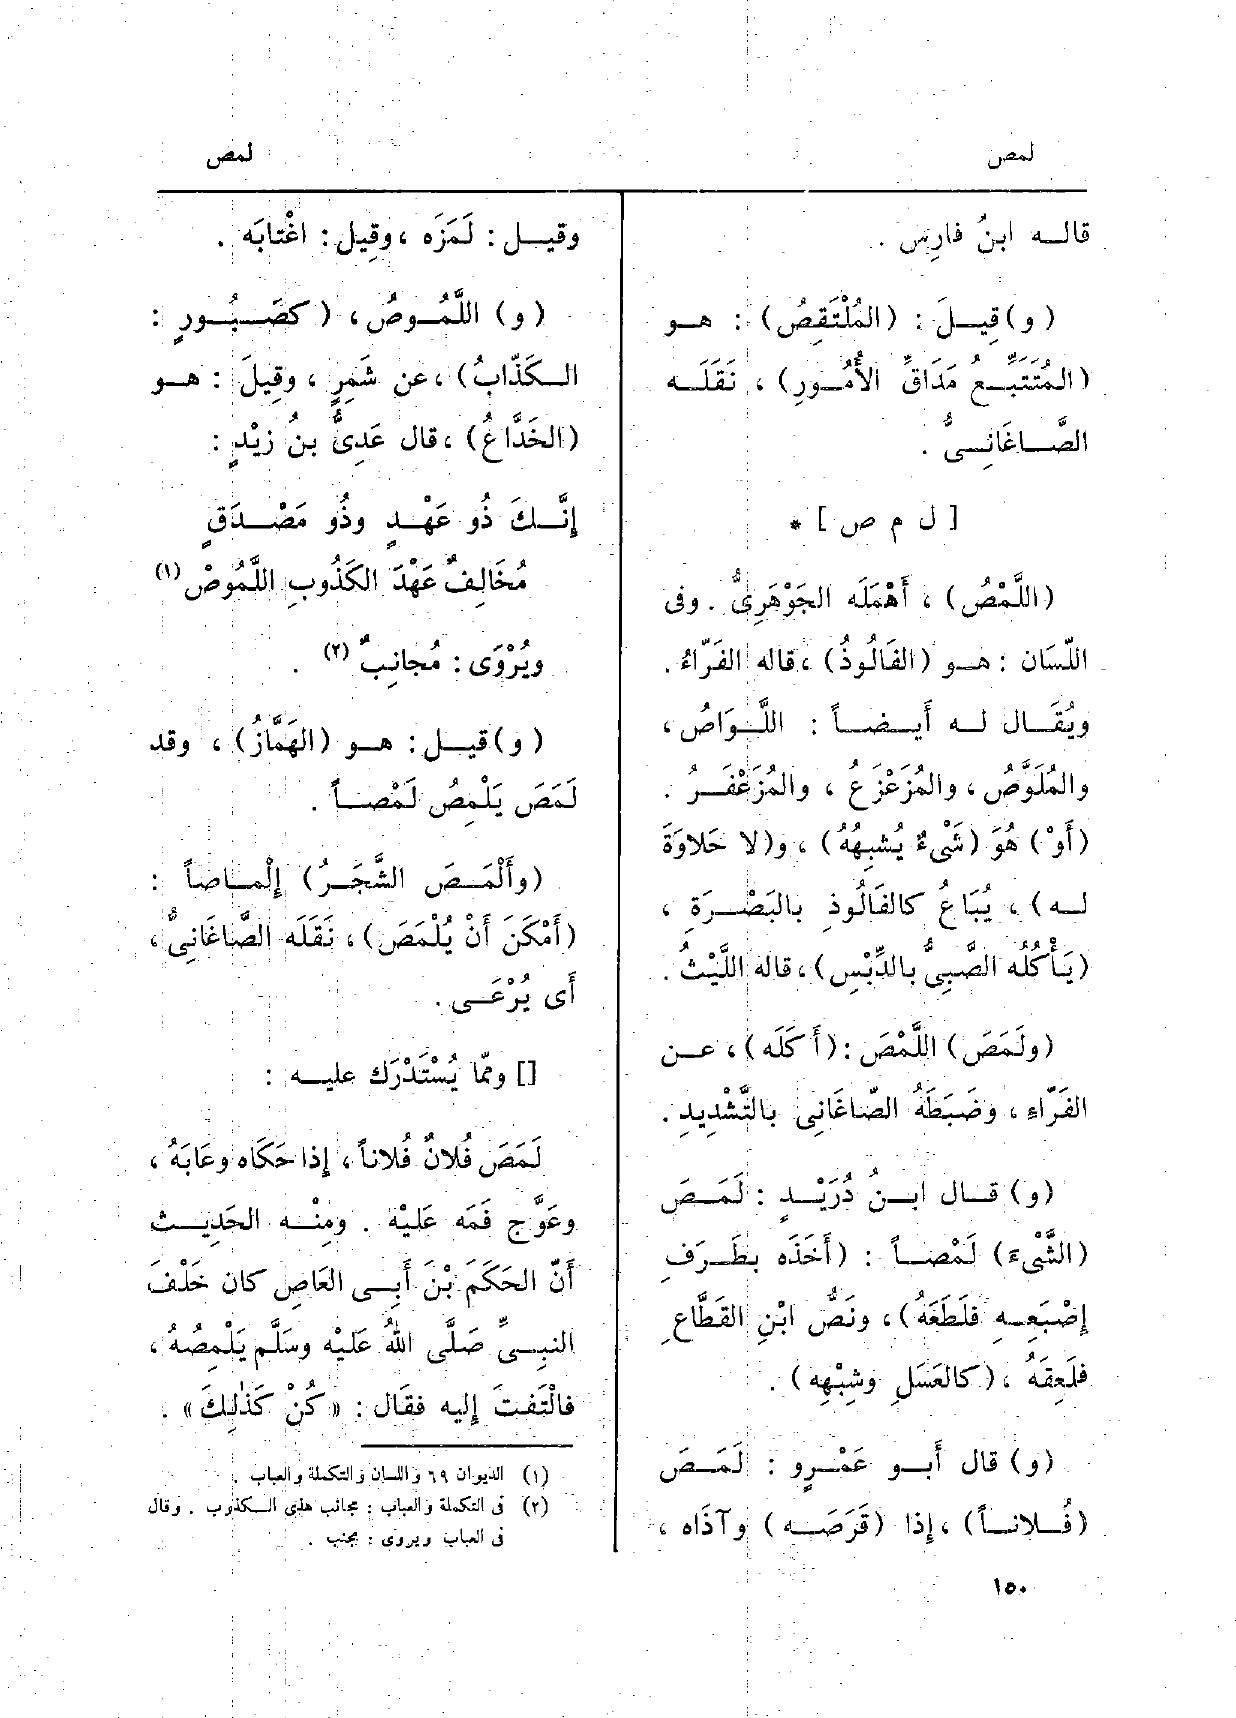 لمص
لمص
قاله ابنُ فارِس .
(و) قِيلَ : (المُلْتَقِصُ) : هو
(المُتَتَبِّعُ مَدَاقِّ الأُمُورِ) ، نَقَلَه
الصَّاغَانِىُّ .
[ ل م ص ] *
(اللَّمْصُ) ، أَهْمَلَه الجَوْهَرِىُّ . وفى
اللِّسَان : هو (الفَالُوذُ) ، قاله الفَرّاءُ .
ويُقَال له أَيضاً : اللَّوَاصُ ،
والمُلَوَّصُ ، والمُزَعْزَعُ ، والمُزَعْفَرُ .
(أَوْ) هُوَ (شَىْءٌ يُشبِهُهُ) ، و(لا حَلاوَةَ
له) ، يُبَاعُ كالفَالُوذِ بالبَصْرَةِ ،
(يَأْكُلُه الصَّبِىُّ بالدِّبْسِ) ، قاله اللَّيْثُ .
(ولَمَصَ) اللَّمْصَ : (أَكَلَه) ، عن
الفَرّاءِ ، وضَبَطَهُ الصّاغَانِى بالتَّشْدِيدِ .
(و) قال ابنُ دُرَيْدٍ : لَمَصَ
(الشَّىْءَ) لَمْصاً : (أَخَذَه بطَرَفِ
إِصْبَعِهِ فلَطَعَهُ) ، ونَصُّ ابْنِ القَطَّاعِ
فلَعِقَهُ ، (كالعَسَلِ وشِبْهِه) .
(و) قال أَبو عَمْرٍو : لَمَصَ
(فُلاناً) ، إِذا (قَرَصَه) وآذَاه ،
وقيل : لَمَزَه ، وقِيل : اغْتابَه .
(و) اللَّمُوصُ ، (كصَبُورٍ :
الكَذّابُ) ، عن شَمِرٍ ، وقِيلَ : هو
(الخَدَّاعُ) ، قال عَدِىُّ بنُ زيْدٍ :
إِنَّكَ ذُو عَهْدٍ وذُو مَصْدَقٍ
مُخَالِفٌ عَهْدَ الكَذُوبِ اللَّمُوصْ (١)
ويُرْوَى : مُجانِبٌ (٢) .
(و) قيل : هو (الهَمَّازُ) ، وقد
لَمَصَ يَلْمِصُ لَمْصاً .
(وأَلْمَصَ الشَّجَرُ) إِلْماصاً :
(أَمْكَنَ أَنْ يُلْمَصَ) ، نَقَلَه الصَّاغَانِىُّ ،
أَى يُرْعَى .
[] وممّا يُسْتَدْرَك عليه :
لَمَصَ فُلانٌ فُلاناً ، إِذا حَكَاه وعَابَهُ ،
وعَوَّج فَمَه عَلَيْه . ومِنْه الحَدِيث
أَنّ الحَكَمَ بْنَ أَبِى العَاصِ كان خَلْفَ
النبِىِّ صَلَّى اللهُ عَلَيْه وسَلَّم يَلْمِصُهُ ،
فالْتَفَتَ إِليه فقَال : « كُنْ كَذٰلِكَ » .
(١) الديوان ٦٩ واللسان والتكملة والعباب .
(٢) فى التكملة والعباب : مجانب هدى الكذوب . وقال
فى العباب ويروى : مجنب .
١٥٠